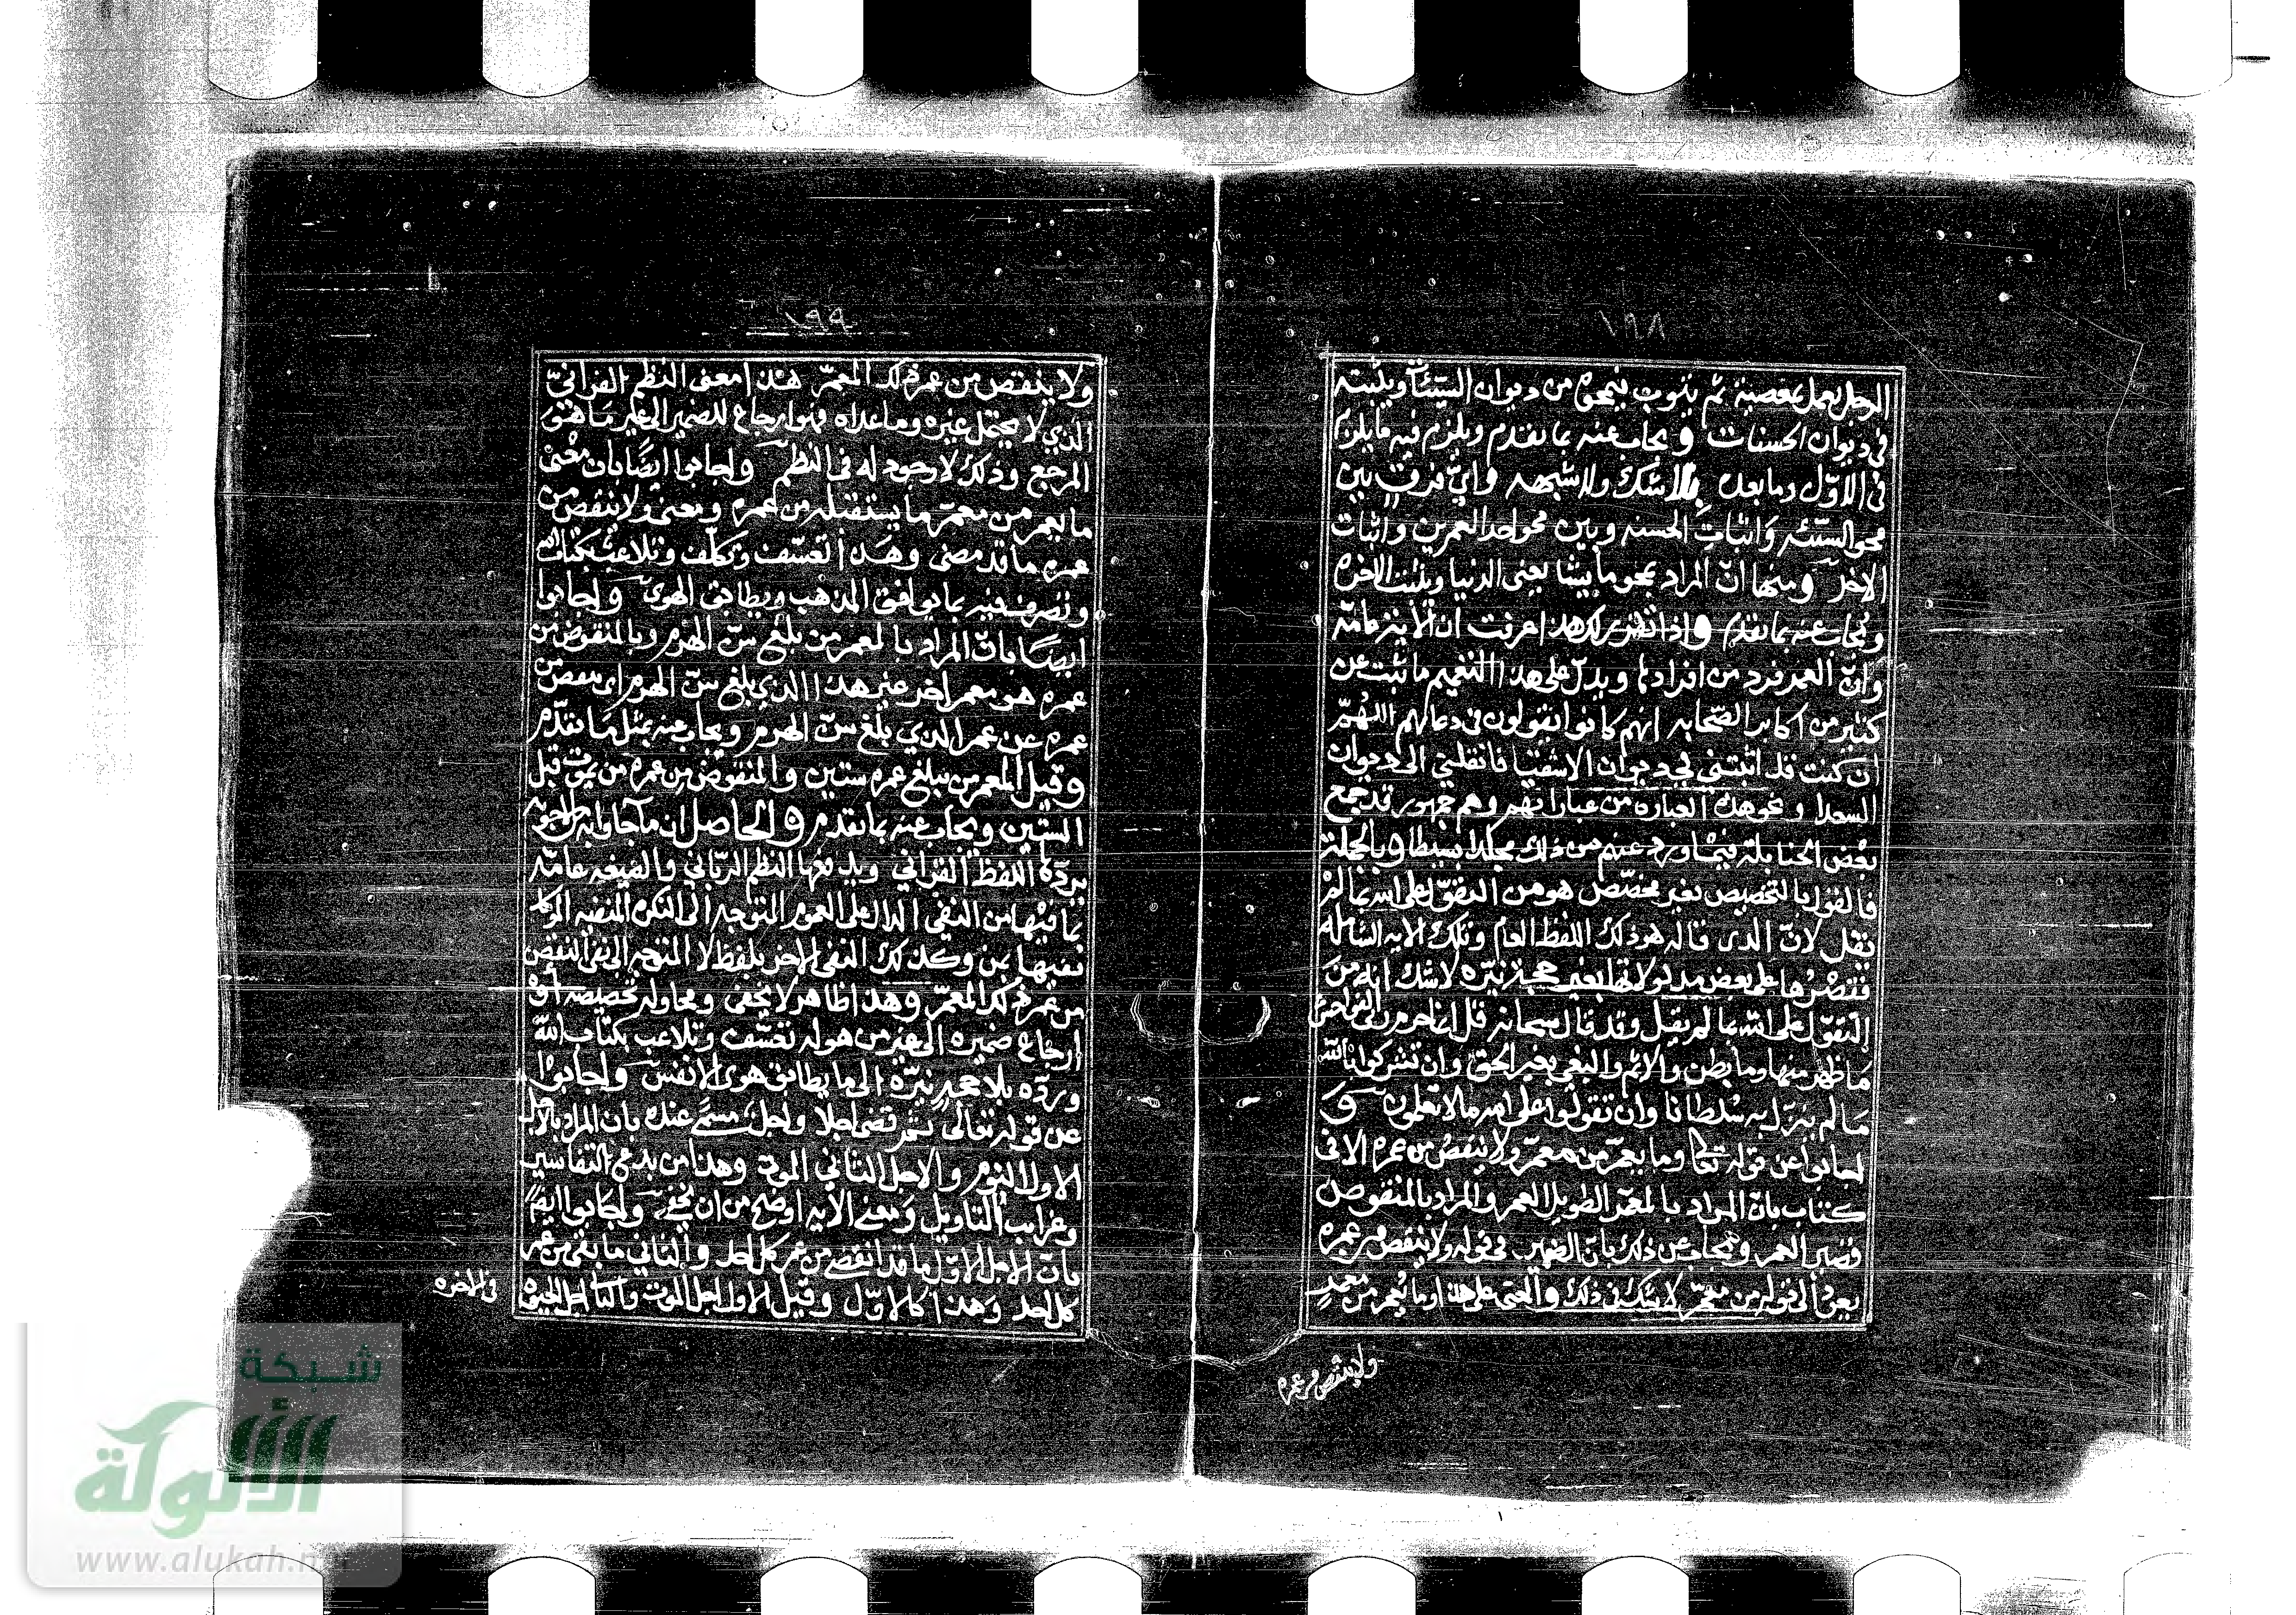 ١٩٨
الرجل يعمل بمعصية ثم يتوب فيمحوه من ديوان السيئات ويثبته
في ديوان الحسنات ويجاب عنه بما تقدم ويلزم فيه ما يلزم
في الاول وما بعده بلا شك ولا شبهه واي فرق بين
محو السيئه واثبات الحسنه وبين محو احد العمرين واثبات
الاخر ومنها ان المراد يمحو ما يشا يعنى الدنيا ويثبت الاخره
ويجاب عنه بما تقدم واذا تقرر لك هذا عرفت ان الايه عامه
وان العمر فرد من افرادها ويدل على هذا التعميم ما ثبت عن
كثير من اكابر الصحابه انهم كانوا يقولون في دعائهم اللهم
ان كنت قد اثبتنى في ديوان الاشقيا فانقلني الى ديوان
السعدا ونحو هذه العباره من عباراتهم وهم جمهور قد جمع
بعض الحنابله فيما ورد عنهم من ذلك مجلدا بسيطا وبالجملة
فالقول بالتخصيص بغير مخصص هو من التقول على الله بما لم
يقل لان الذى قاله هو ذلك اللفظ العام وتلك الايه الشامله
فقصرها على بعض مدلولاتها بغير حجة نيره لا شك انه من
التقول على الله بما لم يقل وقد قال سبحانه قل انما حرم ربي الفواحش
ما ظهر منها وما بطن والاثم والبغي بغير الحق وان تشركوا بالله
ما لم ينزل به سلطانا وان تقولوا على الله مالا تعلمون و
اجابوا عن قوله تعالى وما يعمر من معمر ولا ينقص من عمره الا في
كتاب بان المراد بالمعمر الطويل العمر والمراد بالمنقوص
قصير العمر ويجاب عن ذلك بان الضمير في قوله ولا ينقص من عمره
يعود الى قوله من معمر لا شك في ذلك والمعنى على هذا وما يعمر من معمر
ولا ينقص من عمره
١٩٩
ولا ينقص من عمر ذلك المعمر هذا معنى النظم القراني
الذي لا يحتمل غيره وما عداه فهو ارجاع للضمير الى غير ما هو
المرجع وذلك لا وجود له في النظم واجابوا ايضا بان معنى
ما يعمر من معمر ما يستقبله من عمره ومعنى ولا ينقص من
عمره ما قد مضى وهذا تعسف وتكلف وتلاعب بكتاب الله
وتصرف فيه بما يوافق المذهب ويطابق الهوى واجابوا
ايضا بان المراد بالمعمر من بلغ سن الهرم وبالمنقوض من
عمره هو معمر اخر غير هذا الذي بلغ سن الهرم اى ينقص من
عمره عن عمر الذي بلغ سن الهرم ويجاب عنه بمثل ما تقدم
وقيل المعمر من يبلغ عمره ستين والمنقوض من عمره من يموت قبل
الستين ويجاب عنه بما تقدم والحاصل ان ما جاوا به من الاجوبه
يرده اللفظ القراني ويدفعها النظم الرباني والصيغه عامه
بما فيها من النفي الدال على العموم المتوجه الى النكره المنفيه الموكد
نفيها بمن وكذلك النفى الاخر بلفظ لا المتوجه الى نفى النقص
من عمر ذلك المعمر وهذا ظاهر لا يخفى ومحاوله تخصيصه او
ارجاع ضميره الى غير من هو له تعسف وتلاعب بكتاب الله
ورده بلا حجه نيره الى ما يطابق هوى الانفس واجابوا
عن قوله تعالى ثم قضى اجلا واجل مسمى عنده بان المراد بالاجل
الاول النوم والاجل الثاني الموت وهذا من بدع التفاسير
وغرايب التاويل ومعنى الايه اوضح من ان يخفى واجابوا ايضا
بان الاجل الاول ما قد انقضى من عمر كل احد والثاني ما بقى من عمر
كل احد وهذا كالاول وقيل الاول اجل الموت والثاني اجل الحيوة
في الاخره
شبكة
الألولة
www.alukah.n